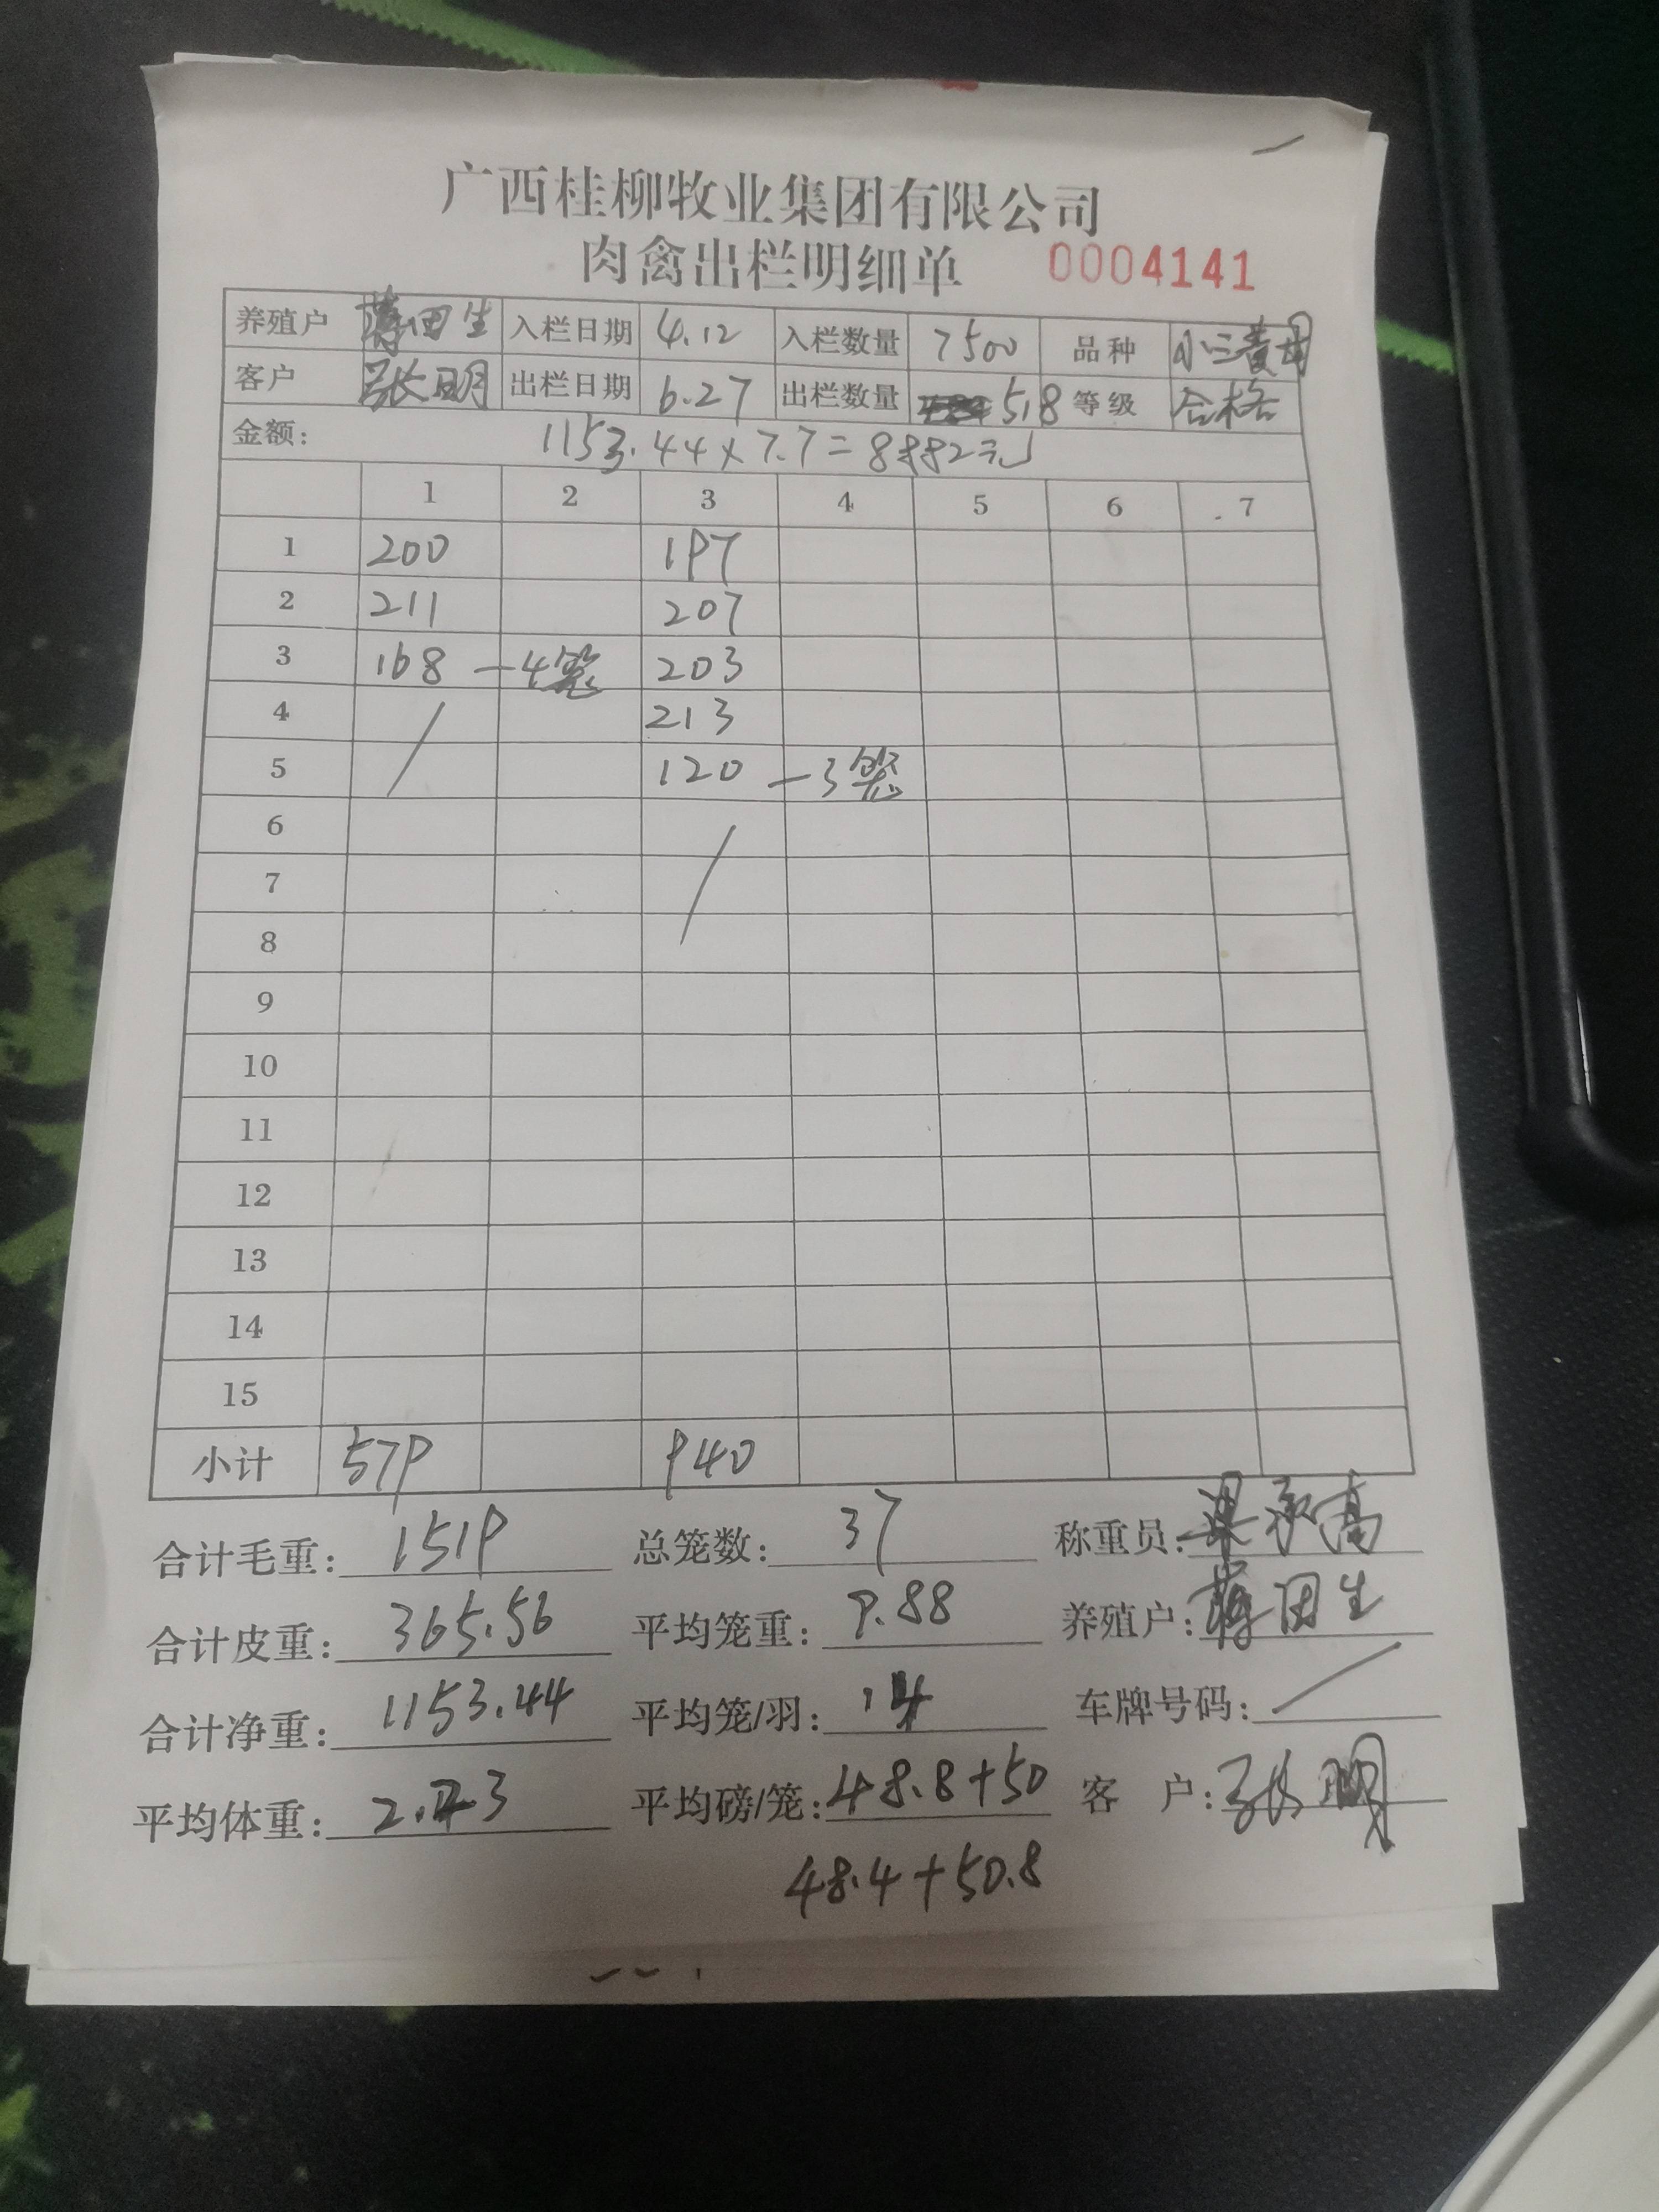 广西桂柳牧业集团有限公司
肉禽出栏明细单 0004141
养殖户 蒋田生 入栏日期 4.12 入栏数量 7500 品种 小三黄母
客户 张明 出栏日期 6.27 出栏数量 518 等级 合格
金额: 1153.44×7.7=8882元
1 2 3 4 5 6 7
1 200 197
2 211 207
3 168 -4笼 203
4 213
5 120 -3笼
6
7
8
9
10
11
12
13
14
15
小计 579 940
合计毛重: 1519 总笼数: 37 称重员: 梁承高
合计皮重: 365.56 平均笼重: 9.88 养殖户: 蒋田生
合计净重: 1153.44 平均笼/羽: 14 车牌号码: /
平均体重: 2.23 平均磅/笼: 48.8+50 客 户: 张明
48.4+50.8